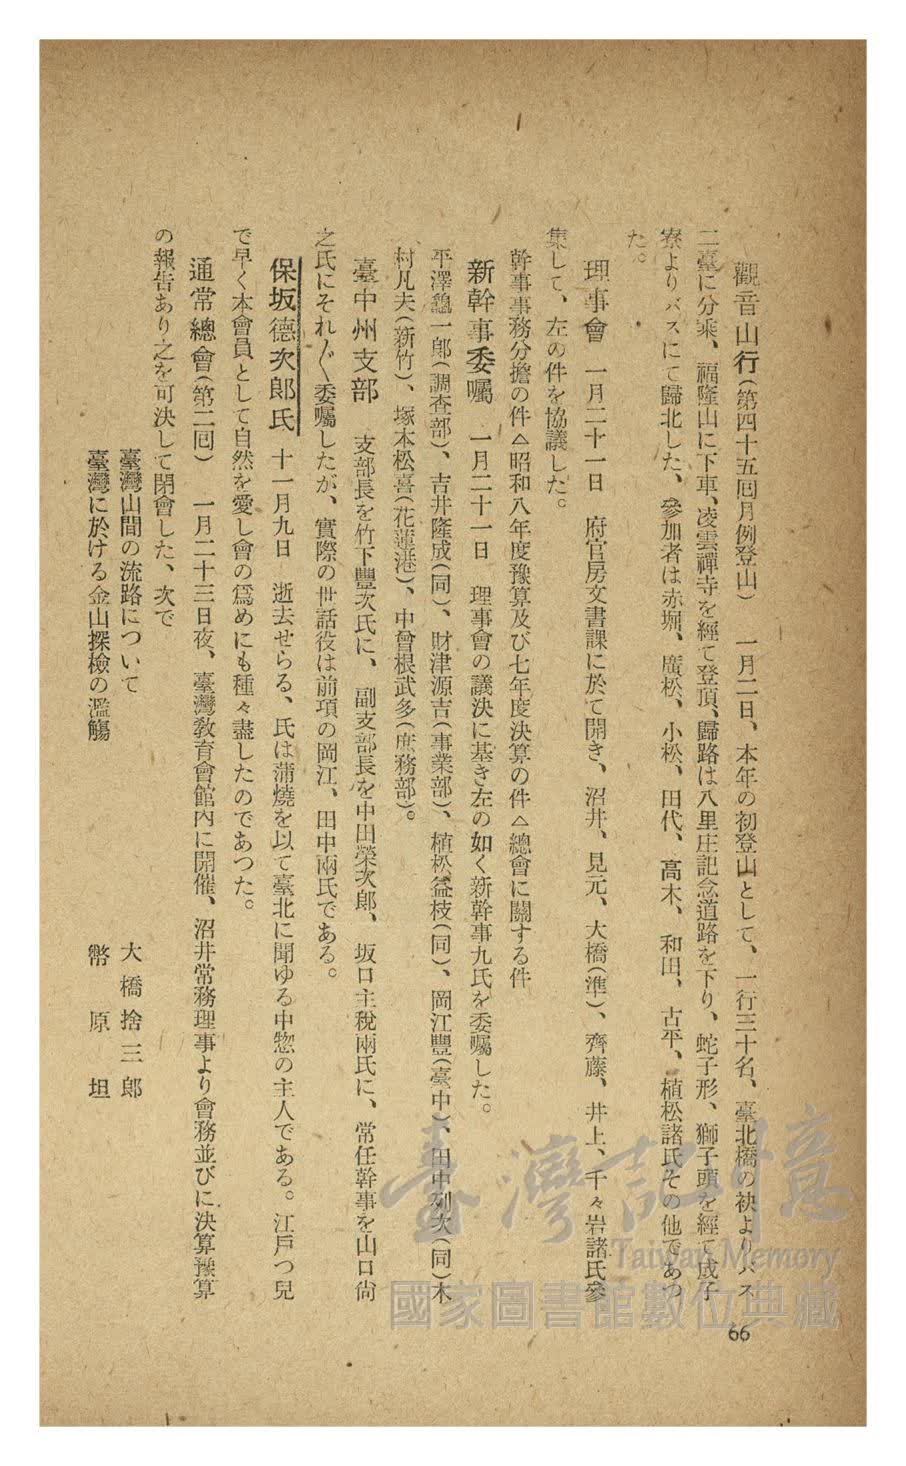 觀音山行(第四十五囘月例登山) 一月二日、本年の初登山として、一行三十名、臺北橋の袂よりバス
二臺に分乘、福隆山に下車、凌雲禪寺を經て登頂、歸路は八里庄記念道路を下り、蛇子形、獅子頭を經て成子
寮よりバスにて歸北した、參加者は赤堀、廣松、小松、田代、高木、和田、古平、植松諸氏その他であつ
た。
理事會 一月二十一日 府官房文書課に於て開き、沼井、見元、大橋(準)、齊藤、井上、千々岩諸氏參
集して、左の件を協議した。
幹事事務分擔の件△昭和八年度豫算及び七年度決算の件△總會に關する件
新幹事委囑 一月二十一日 理事會の議決に基き左の如く新幹事九氏を委囑した。
平澤龜一郎(調査部)、吉井隆成(同)、財津源吉(事業部)、植松益枝(同)、岡江豐(臺中)、田中列次(同)木
村凡夫(新竹)、塚本松喜(花蓮港)、中曾根武多(庶務部)。
臺中州支部 支部長を竹下豐次氏に、副支部長を中田榮次郎、坂口主稅兩氏に、常任幹事を山口尙
之氏にそれ〴〵委囑したが、實際の世話役は前項の岡江、田中兩氏である。
保坂德次郎氏 十一月九日 逝去せらる、氏は蒲燒を以て臺北に聞ゆる中惣の主人である。江戶つ兒
で早く本會員として自然を愛し會の爲めにも種々盡したのであつた。
通常總會(第二囘) 一月二十三日夜、臺灣敎育會館內に開催、沼井常務理事より會務並びに決算豫算
の報告あり之を可決して閉會した、次で
臺灣山間の流路について 大橋捨三郎
臺灣に於ける金山探檢の濫觴 幣原坦
66
臺灣記憶
Taiwan Memory
國家圖書館數位典藏